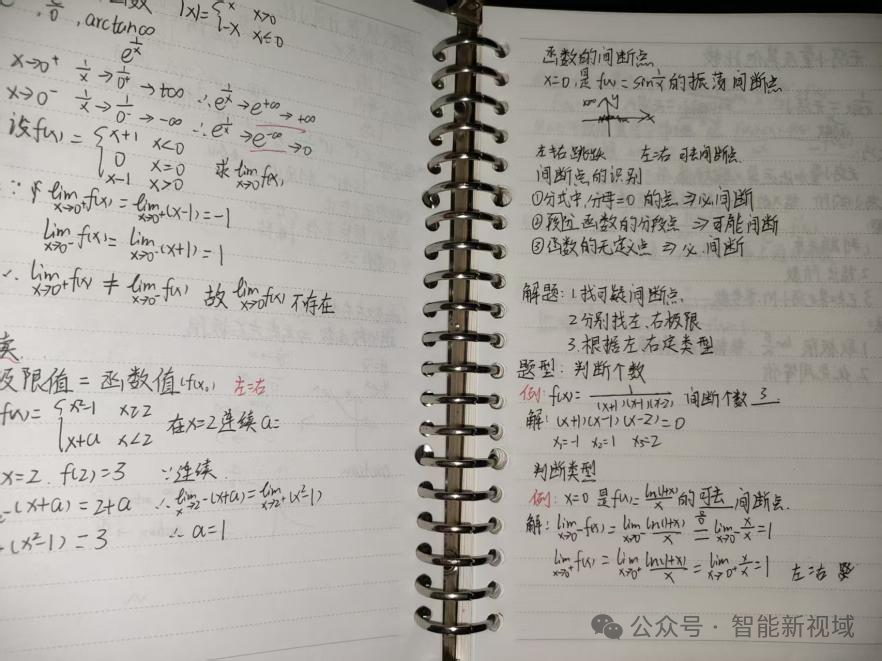 函数 |x|={x x>0
-x x≤0
0/0, arctan∞
e^(1/x)
x→0⁺ 1/x→1/0⁺→+∞ ∴e^(1/x)→e^(+∞)→+∞
x→0⁻ 1/x→1/0⁻→-∞ ∴e^(1/x)→e^(-∞)→0
设f(x)={x+1 x<0
0 x=0 求lim x→0 f(x)
x-1 x>0
∵ lim x→0⁺ f(x)=lim x→0⁺ (x-1)=-1
lim x→0⁻ f(x)=lim x→0⁻ (x+1)=1
∴ lim x→0⁺ f(x) ≠ lim x→0⁻ f(x) 故 lim x→0 f(x) 不存在
极限值=函数值(f(x₀)) 左=右
f(x)={x²-1 x≥2
x+a x<2 在x=2连续 a=
x=2. f(2)=3 ∵连续
-(x+a)=2+a ∴lim x→2⁻(x+a)=lim x→2⁺(x²-1)
+(x²-1)=3 ∴a=1
函数的间断点
x=0,是f(x)=sin1/x的振荡间断点
y
x
左≠右 跳跃 左=右 可去间断点
间断点的识别
①分式中,分母=0 的点 ⇒必间断
②段函数的分段点 ⇒可能间断
③函数的无定义点 ⇒必间断
解题:1.找可疑间断点.
2.分别找左、右极限
3.根据左、右定类型
题型:判断个数
例:f(x)=1/((x+1)(x-1)(x-2)) 间断个数 3
解:(x+1)(x-1)(x-2)=0
x₁=-1 x₂=1 x₃=2
判断类型
例:x=0 是f(x)=ln(1+x)/x 的可去间断点.
解:lim x→0⁻ f(x)=lim x→0⁻ ln(1+x)/x =(0/0) lim x→0⁻ x/x=1
lim x→0⁺ f(x)=lim x→0⁺ ln(1+x)/x=lim x→0⁺ x/x=1 左=右
公众号·智能新视域